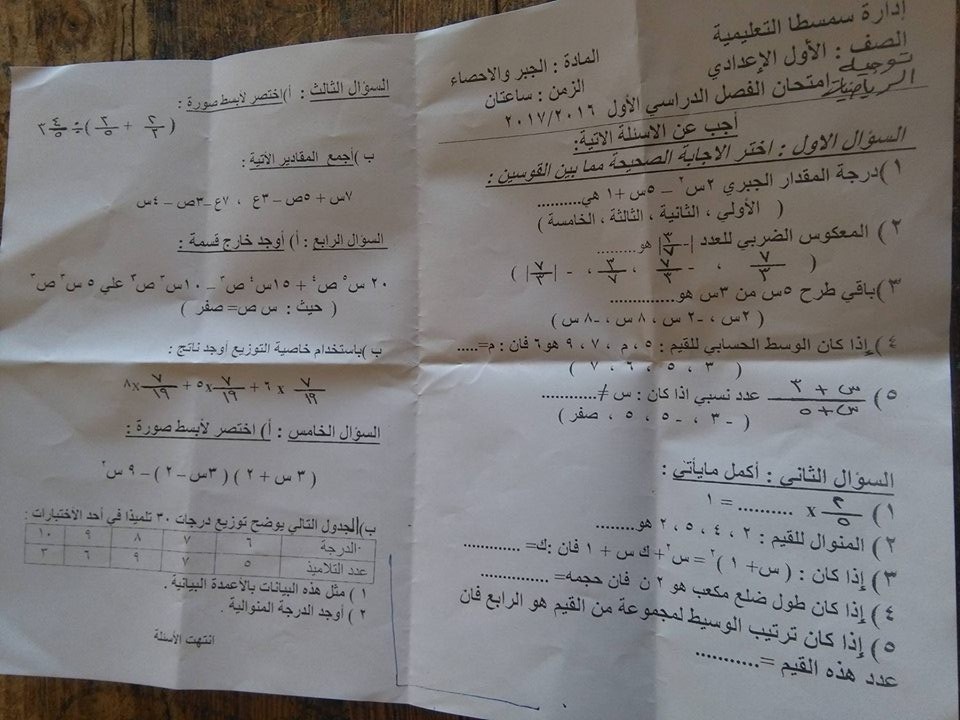 إدارة سمسطا التعليمية
الصف : الأول الإعدادي
المادة : الجبر والاحصاء
توجيه الرياضيات
الزمن : ساعتان
امتحان الفصل الدراسي الأول ٢٠١٦/٢٠١٧
أجب عن الاسئلة الاتية:
السؤال الاول : اختر الاجابة الصحيحة مما بين القوسين :
١) درجة المقدار الجبري ٢س٢ – ٥س + ١ هي..........
( الأولي ، الثانية ، الثالثة ، الخامسة )
٢) المعكوس الضربي للعدد |-٣/٧| هو.........
( ٧/٣ ، -٧/٣ ، ٣/٧ ، -|٧/٣| )
٣) باقي طرح ٥س من ٣س هو.............
( ٢س ، -٢ س ، ٨س ، -٨ س )
٤) إذا كان الوسط الحسابي للقيم : ٥ ، م ، ٧ ، ٩ هو ٦ فان : م=.....
( ٣ ، ٥ ، ٦ ، ٧ )
٥) س + ٣ / س + ٥ عدد نسبي اذا كان : س ≠............
( -٣ ، -٥ ، ٥ ، صفر )
السؤال الثاني : أكمل مايأتي :
١) ٢/٥ x .......... = ١
٢) المنوال للقيم : ٢ ، ٤ ، ٥ ، ٢ هو........
٣) إذا كان : ( س+ ١ )٢ = س٢+ ك س + ١ فان :ك= ............
٤) إذا كان طول ضلع مكعب هو ٢ ن فان حجمه= .............
٥) إذا كان ترتيب الوسيط لمجموعة من القيم هو الرابع فان
عدد هذه القيم =...........
السؤال الثالث : أ) اختصر لأبسط صورة :
( ٢/٣ + ٢/٥ ) ÷ ٣ ٤/٥
ب ) أجمع المقادير الآتية :
٧س + ٥ص – ٣ع ، ٧ع –٣ص – ٤س
السؤال الرابع : أ ) أوجد خارج قسمة :
٢٠ س٥ ص٤ + ١٥س٤ ص٣ – ١٠س٣ ص٣ علي ٥ س٣ ص٣
( حيث : س ص= صفر )
ب )باستخدام خاصية التوزيع أوجد ناتج :
٧/١٩ x ٦ + ٧/١٩ x ٥ + ٧/١٩ x ٨
السؤال الخامس : أ ) اختصر لأبسط صورة :
( ٣ س + ٢ ) ( ٣س – ٢ ) – ٩ س٢
ب) الجدول التالي يوضح توزيع درجات ٣٠ تلميذا في أحد الاختبارات :
الدرجة ٦ ٧ ٨ ٩ ١٠
عدد التلاميذ ٥ ٧ ٩ ٦ ٣
١ ) مثل هذه البيانات بالأعمدة البيانية .
٢ ) أوجد الدرجة المنوالية .
انتهت الأسئلة